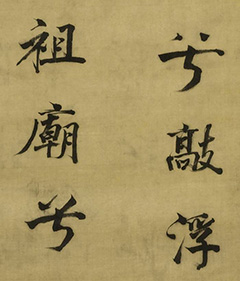 兮敲浮
祖廟兮